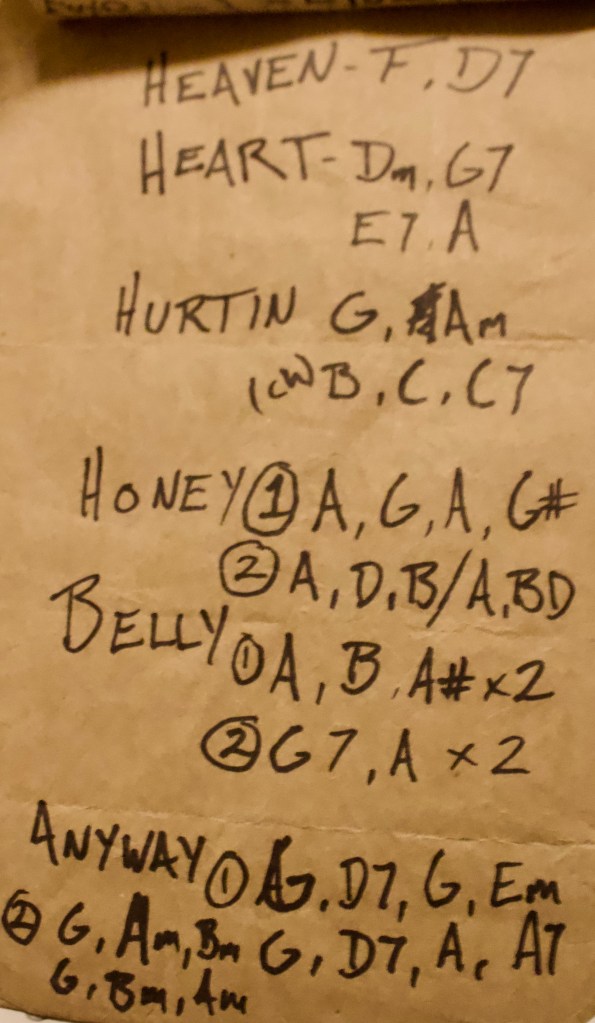 HEAVEN - F, D7
HEART - Dm, G7
E7, A
HURTIN G, Am
B, C, C7
HONEY ① A, G, A, G#
② A, D, B/A, BD
BELLY ① A, B, A# x2
② G7, A x2
ANYWAY ① G, D7, G, Em
② G, Am, Bm G, D7, A, A7
G, Bm, Am